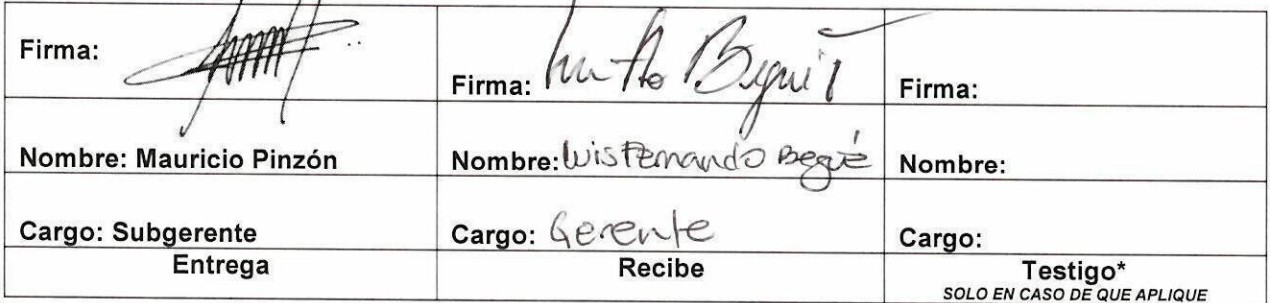 Firma:
Firma:
Firma:
Nombre: Mauricio Pinzón
Nombre: Luis Fernando Begué
Nombre:
Cargo: Subgerente
Cargo: Gerente
Cargo:
Entrega
Recibe
Testigo*
SOLO EN CASO DE QUE APLIQUE